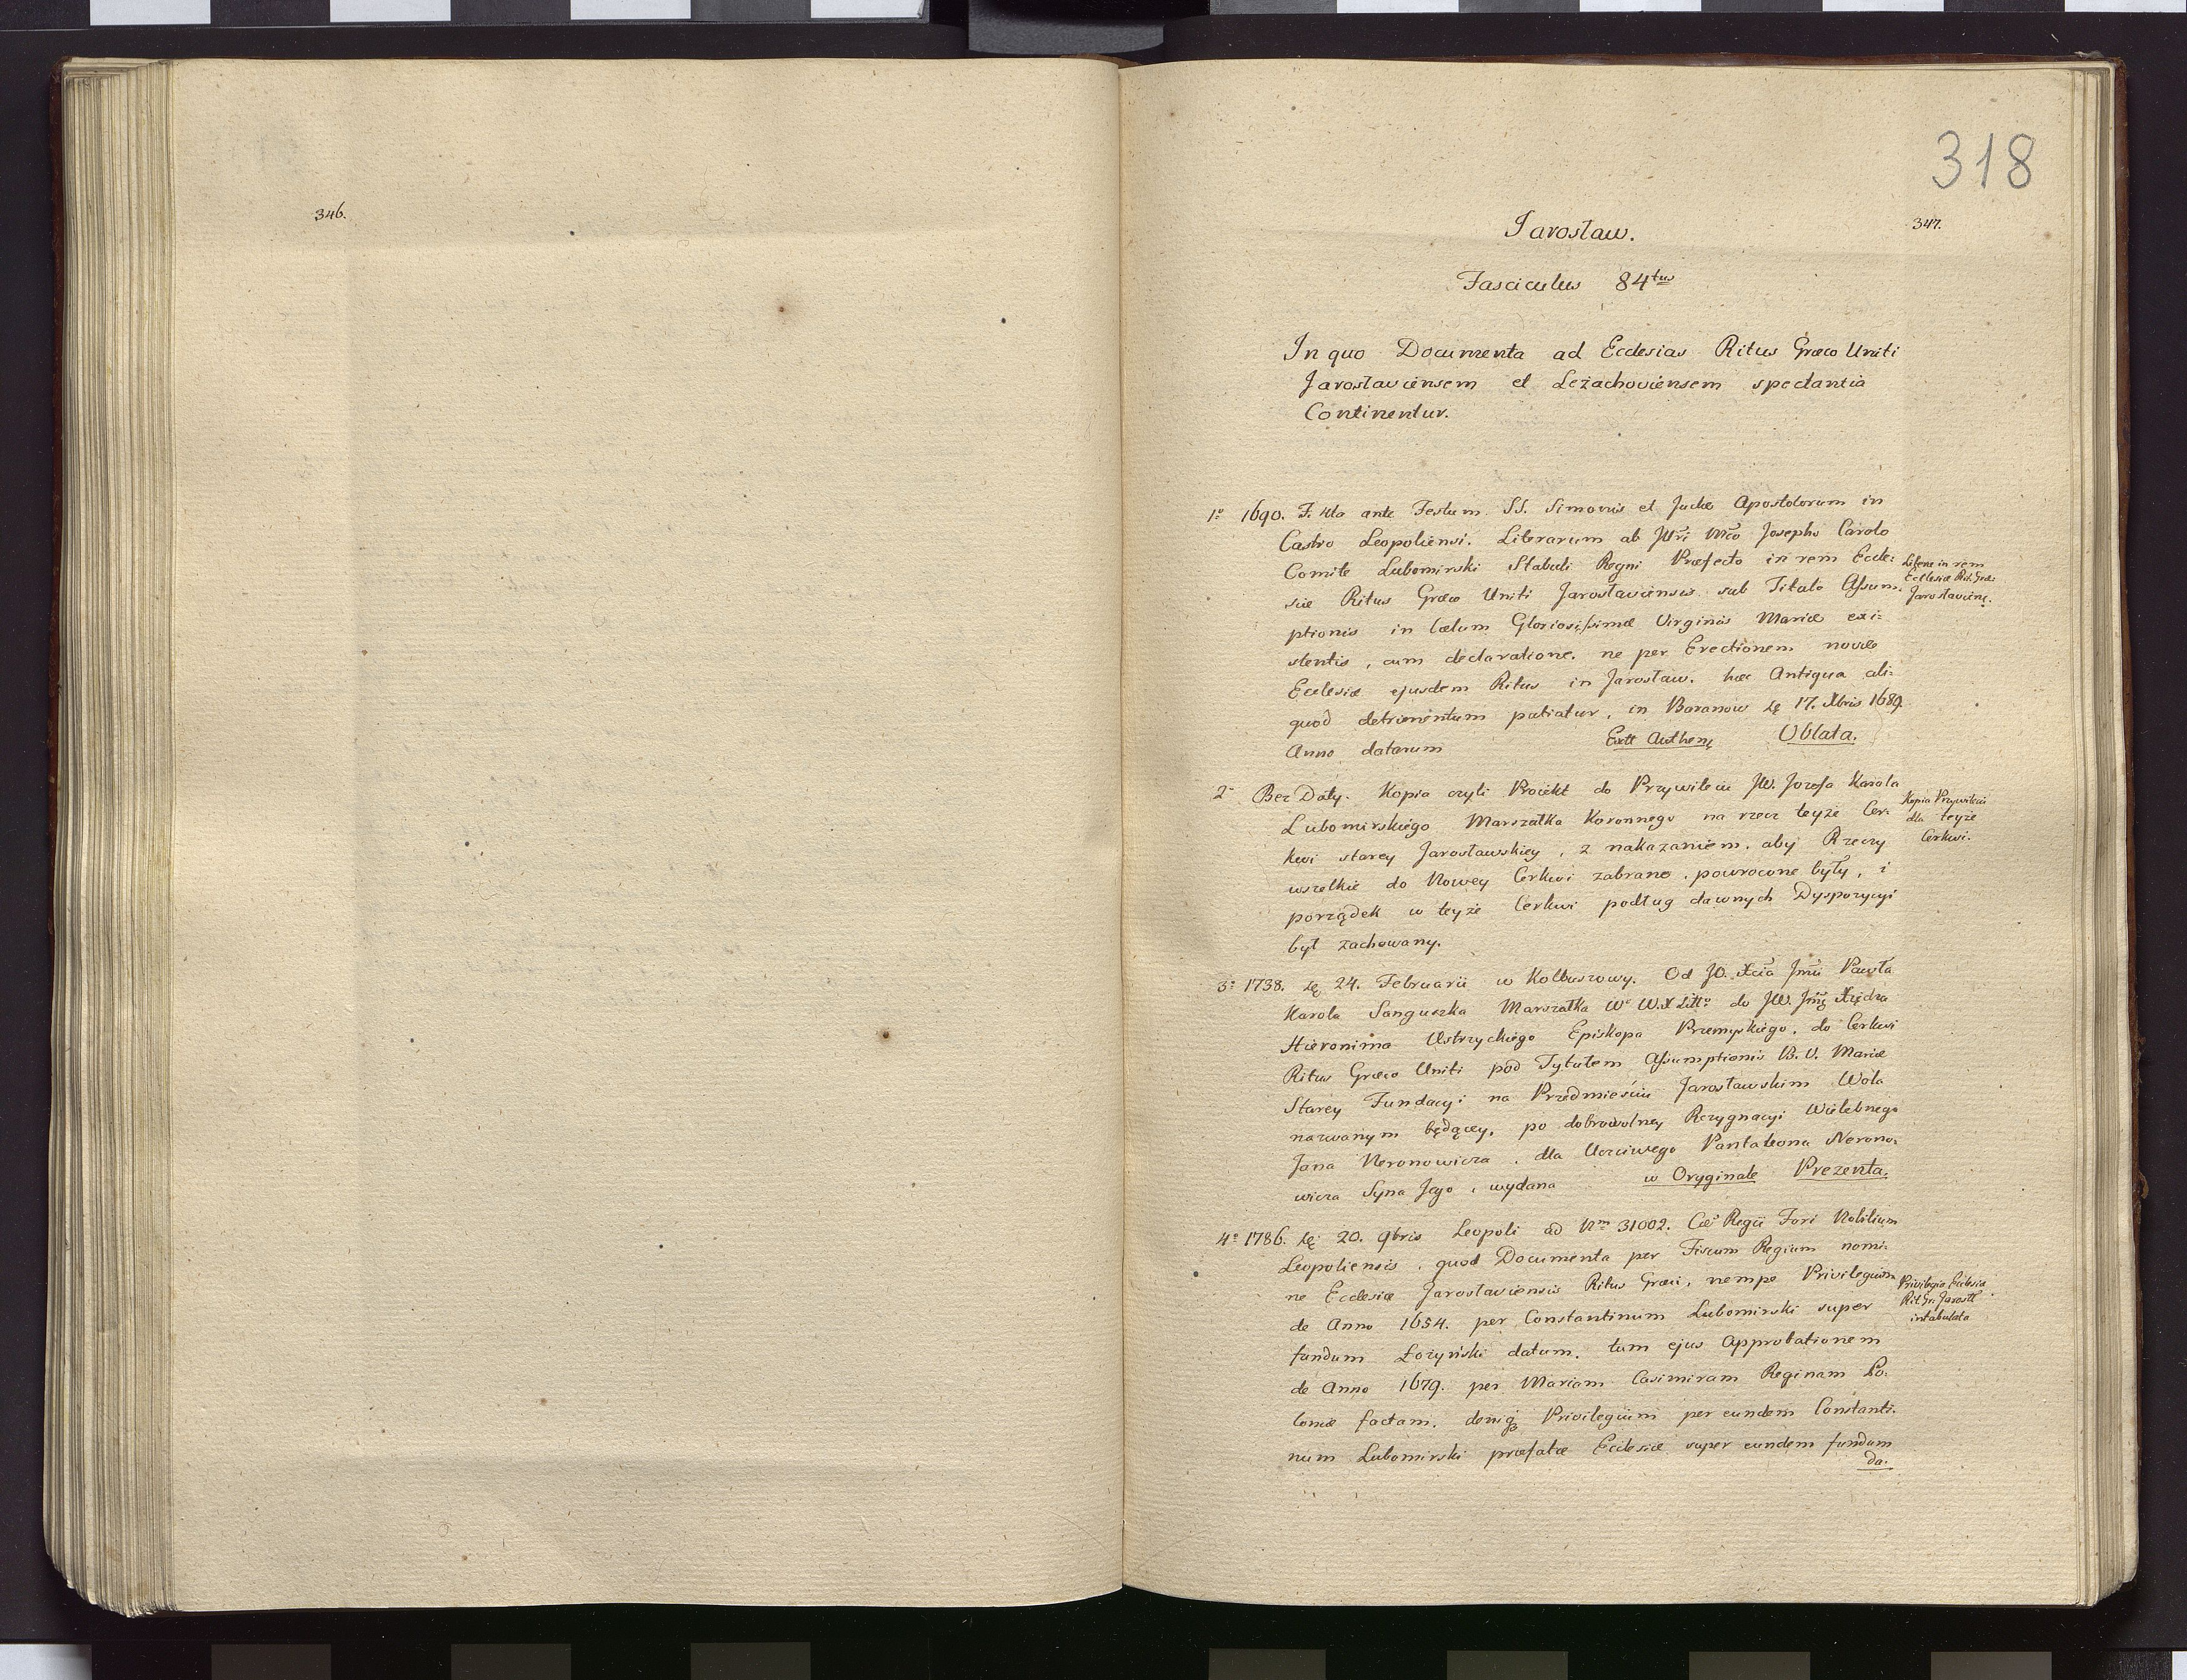 346.
318
347.
Jarosław.
Fasciculus 84tus
In quo Documenta ad Ecclesias Ritus Græco Uniti
Jarosłaviensem et Leżachoviensem spectantia
Continentur.
1º 1690. F. 4ta ante Festum SS. Simonis et Judæ Apostolorum in
Castro Leopoliensi. Literarum ab Illri Mco Josepho Carolo
Comite Lubomirski Stabuli Regni Præfecto in rem Eccle:
siæ Ritus Græco Uniti Jarosłaviensis sub Titulo Assum:
ptionis in Cælum Gloriosissimæ Virginis Mariæ exi:
stentis, cum declaratione, ne per Erectionem novæ
Ecclesiæ ejusdem Ritus in Jarosław, hæc Antiqua ali:
quod detrimentum patiatur, in Baranow 17. Xbris 1689
Anno datarum Extt Authen Oblata.
Literæ in rem
Ecclesiæ Rit. Græ:
Jarosłavien.
2º Bez Daty. Kopia czyli Proiekt do Przywileiu JW. Jozefa Karola
Lubomirskiego Marszałka Koronnego na rzecz teyże Cer:
kwi starey Jarosławskiey, z nakazaniem, aby Rzeczy
wszelkie do Nowey Cerkwi zabrane, powrocone były, i
porządek w teyże Cerkwi podług dawnych Dyspozycyi
był zachowany.
Kopia Przywileiu
dla teyże
Cerkwi.
3º 1738. 24. Februarii w Kolbuszowy. Od JO. Xcia Jmci Pawła
Karola Sanguszka Marszałka Wº W.X Littº do JW. Jmę Xiędza
Hieronima Ustrzyckiego Episkopa Przemyskiego, do Cerkwi
Ritus Græco Uniti pod Tytułem Assumptionis B. V. Mariæ
Starey Fundacyi na Przedmieściu Jarosławskim Wola
nazwanym będącey, po dobrowolney Rezygnacyi Wielebnego
Jana Neronowicza, dla Uczciwego Pantaleona Nerono:
wicza Syna Jego, wydana w Oryginale Prezenta.
4º 1786. 20. 9bris Leopoli ad Nm 31002. Cæs Regii Fori Nobilium
Leopoliensis, quod Documenta per Fiscum Regium nomi:
ne Ecclesiæ Jarosłaviensis Ritus Græci, nempe Privilegium
de Anno 1654. per Constantinum Lubomirski super
fundum Łozyński datum, tum ejus Approbationem
de Anno 1679. per Mariam Casimiram Reginam Po:
loniæ factam, deniq Privilegium per eundem Constanti:
num Lubomirski præfatæ Ecclesiæ super eundem fundum
da:
Privilegia Ecclesiæ
Rit. Gr. Jarosłł
intabulata